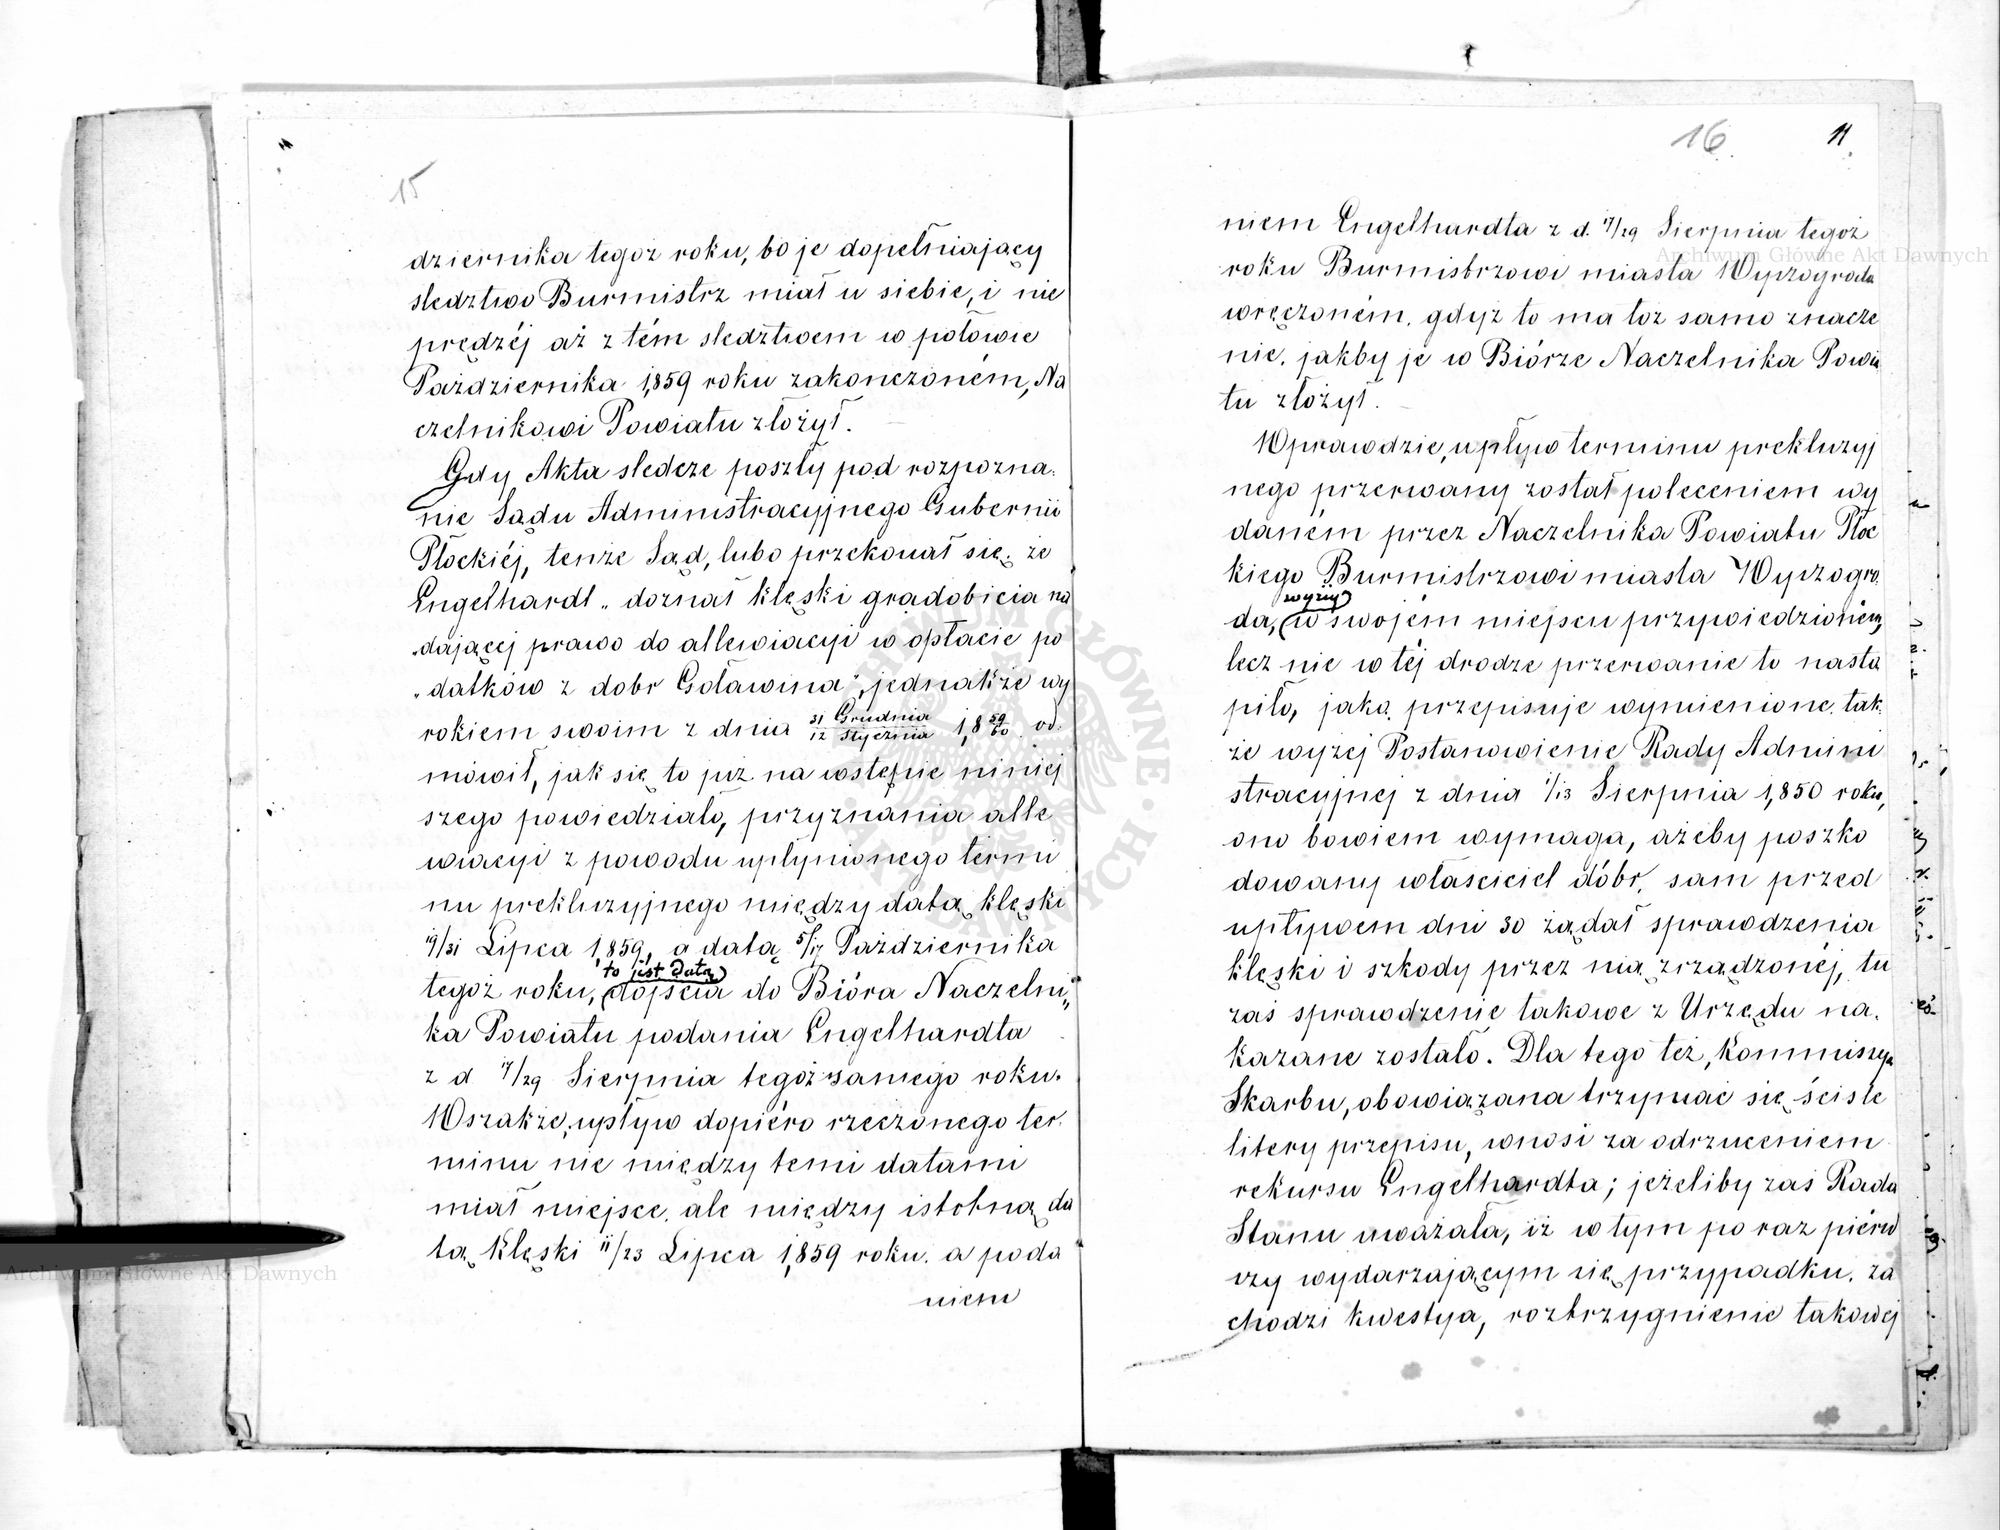 15
dziernika tegoż roku, bo je dopełniający
śledztwo Burmistrz miał u siebie, i nie
prędzéj aż z tém śledztwem w połowie
Października 1859 roku zakonczoném, Na
czelnikowi Powiatu złożył.
Gdy Akta śledcze poszły pod rozpozna-
nie Sądu Administracyjnego Gubernii
Płockiéj, tenże Sąd, lubo przekonał się, że
Engelhardt „doznał klęski gradobicia na
„dającej prawo do allewiacyi w opłacie po
„datków z dobr Goławina", jednakże wy
rokiem swoim z dnia 31 Grudnia / 12 Stycznia 18 59/60 od-
mówił, jak się to już na wstępie niniej
szego powiedziało, przyznania alle
wiacyi z powodu upłynionego termi
nu prekluzyjnego między datą klęski
19/31 Lipca 1859, a datą 5/17 Października
to jest datą
tegoż roku, dojścia do Bióra Naczelni„
ka Powiatu podania Engelhardta
z d 17/29 Sierpnia tegoż samego roku.
Wszakże, upływ dopiéro rzeczonego ter-
minu nie między temi datami
miał miejsce, ale między istotną da
tą klęski 11/23 Lipca 1859 roku, a poda
niem
16
11
niem Engelhardta z d. 17/29 Sierpnia tegoż
roku Burmistrzowi miasta Wyszogroda
wręczoném, gdyż to ma toż samo znacze
nie, jakby je w Biórze Naczelnika Powia
tu złożył.
Wprawdzie, upływ terminu prekluzyj
nego przerwany został poleceniem wy
daném przez Naczelnika Powiatu Płoc
kiego Burmistrzowi miasta Wyszogro-
wyżej
da, w swojém miejscu przywiedzioném,
lecz nie w téj drodze przerwanie to nastą
piło, jaką przepisuje wymienione tak-
że wyżej Postanowienie Rady Admini
stracyjnej z dnia 1/13 Sierpnia 1850 roku,
ono bowiem wymaga, ażeby poszko
dowany właściciel dóbr, sam przed
upływem dni 30 żądał sprawdzenia
klęski i szkody przez nią zrządzonéj, tu
zaś sprawdzenie takowe z Urzędu na-
kazane zostało. Dla tego też, Kommiszya
Skarbu, obowiązana trzymać się ściśle
litery przepisu, wnosi za odrzuceniem
rekursu Engelhardta; jeżeliby zaś Rada
Stanu uważała, iż w tym po raz piérw
szy wydarzającym się przypadku, za
chodzi kwestya, roztrzygnienie takowej
Archiwum Główne Akt Dawnych
Archiwum Główne Akt Dawnych